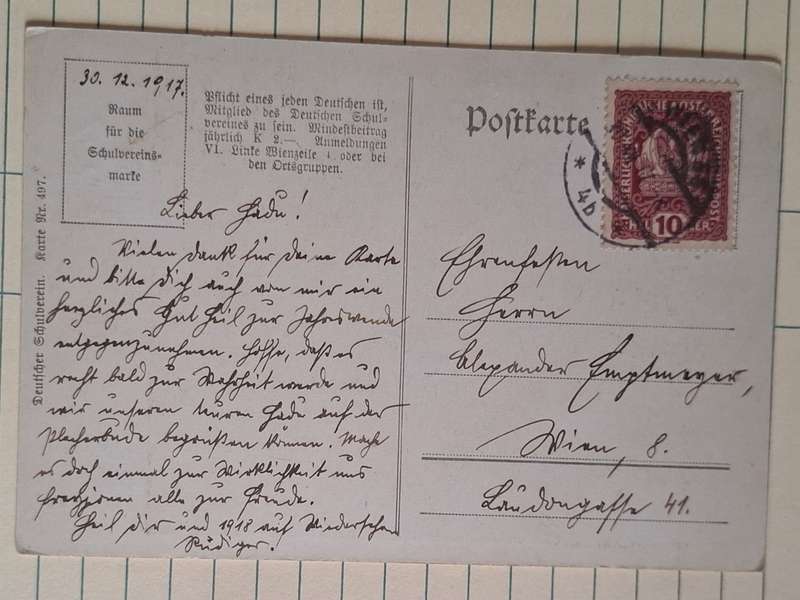 30. 12. 1917.
Raum
für die
Schulvereins-
marke
Pflicht eines jeden Deutschen ist,
Mitglied des Deutschen Schul-
vereines zu sein. Mindestbeitrag
jährlich K 2.—. Anmeldungen
VI. Linke Wienzeile 4 oder bei
den Ortsgruppen.
Deutscher Schulverein. Karte Nr. 497.
Postkarte
HELLER
10
* 4b
Lieber Hadu!
Vielen dank für deine Karte
und bitte dich auch von mir ein
herzliches Gut Heil zur Jahreswende
entgegenzunehmen. Hoffe, daß es
recht bald zur Wahrheit werde und
wir unseren teuren Hadu auf der
begrüßen können. Mache
es doch einmal zur Wirklichkeit uns
alle zur Freude.
Heil dir und 1918 auf Wiedersehen
Rüdiger.
Ehrenfesten
Herrn
Alexander Emptmeyer,
Wien, 8.
Laudongasse 41.